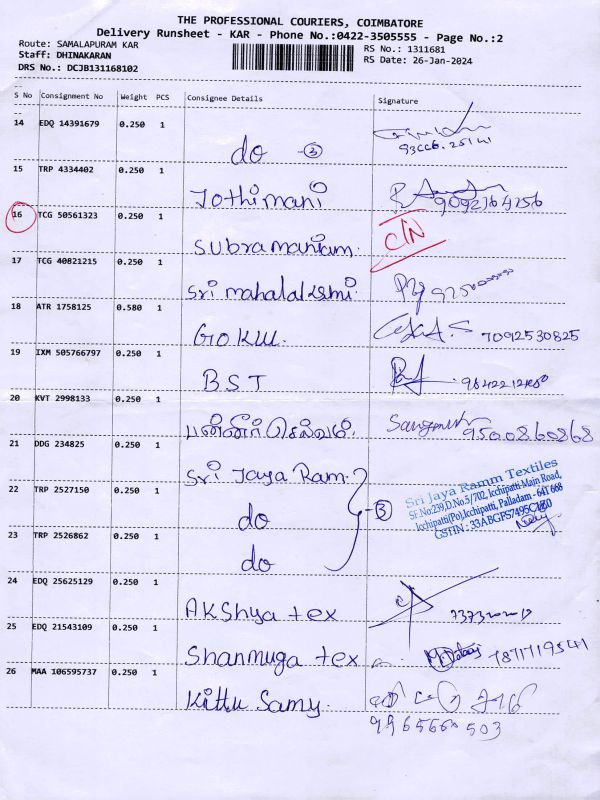 THE PROFESSIONAL COURIERS, COIMBATORE
Delivery Runsheet - KAR - Phone No.:0422-3505555 - Page No.:2
Route: SAMALAPURAM KAR
RS No.: 1311681
Staff: DHINAKARAN
RS Date: 26-Jan-2024
DRS No.: DCJB131168102
S No Consignment No Weight PCS Consignee Details Signature
14 EDQ 14391679 0.250 1
do 3
15 TRP 4334402 0.250 1
Jothimani 9092164256
16 TCG 50561323 0.250 1 C/N
Subramaniam.
17 TCG 40821215 0.250 1
Sri mahalakshmi.
18 ATR 1758125 0.580 1
GOKUL. 7092530825
19 IXM 505766797 0.250 1
BST
20 KVT 2998133 0.250 1
பன்னீர் செல்வம். 9500860868
21 DDG 234825 0.250 1
Sri Jaya Ram.
Sri Jaya Ramm Textiles
SF.No:239,D.No.5/702, Icchipatti Main Road,
Icchipatti(Po),Icchipatti, Palladam - 641 668
GSTIN : 33ABGPS7495C1Z0
22 TRP 2527150 0.250 1
do 3
23 TRP 2526862 0.250 1
do
24 EDQ 25625129 0.250 1
AKShya tex
25 EDQ 21543109 0.250 1
Shanmuga tex 7871719541
26 MAA 106595737 0.250 1
Kittu Samy.